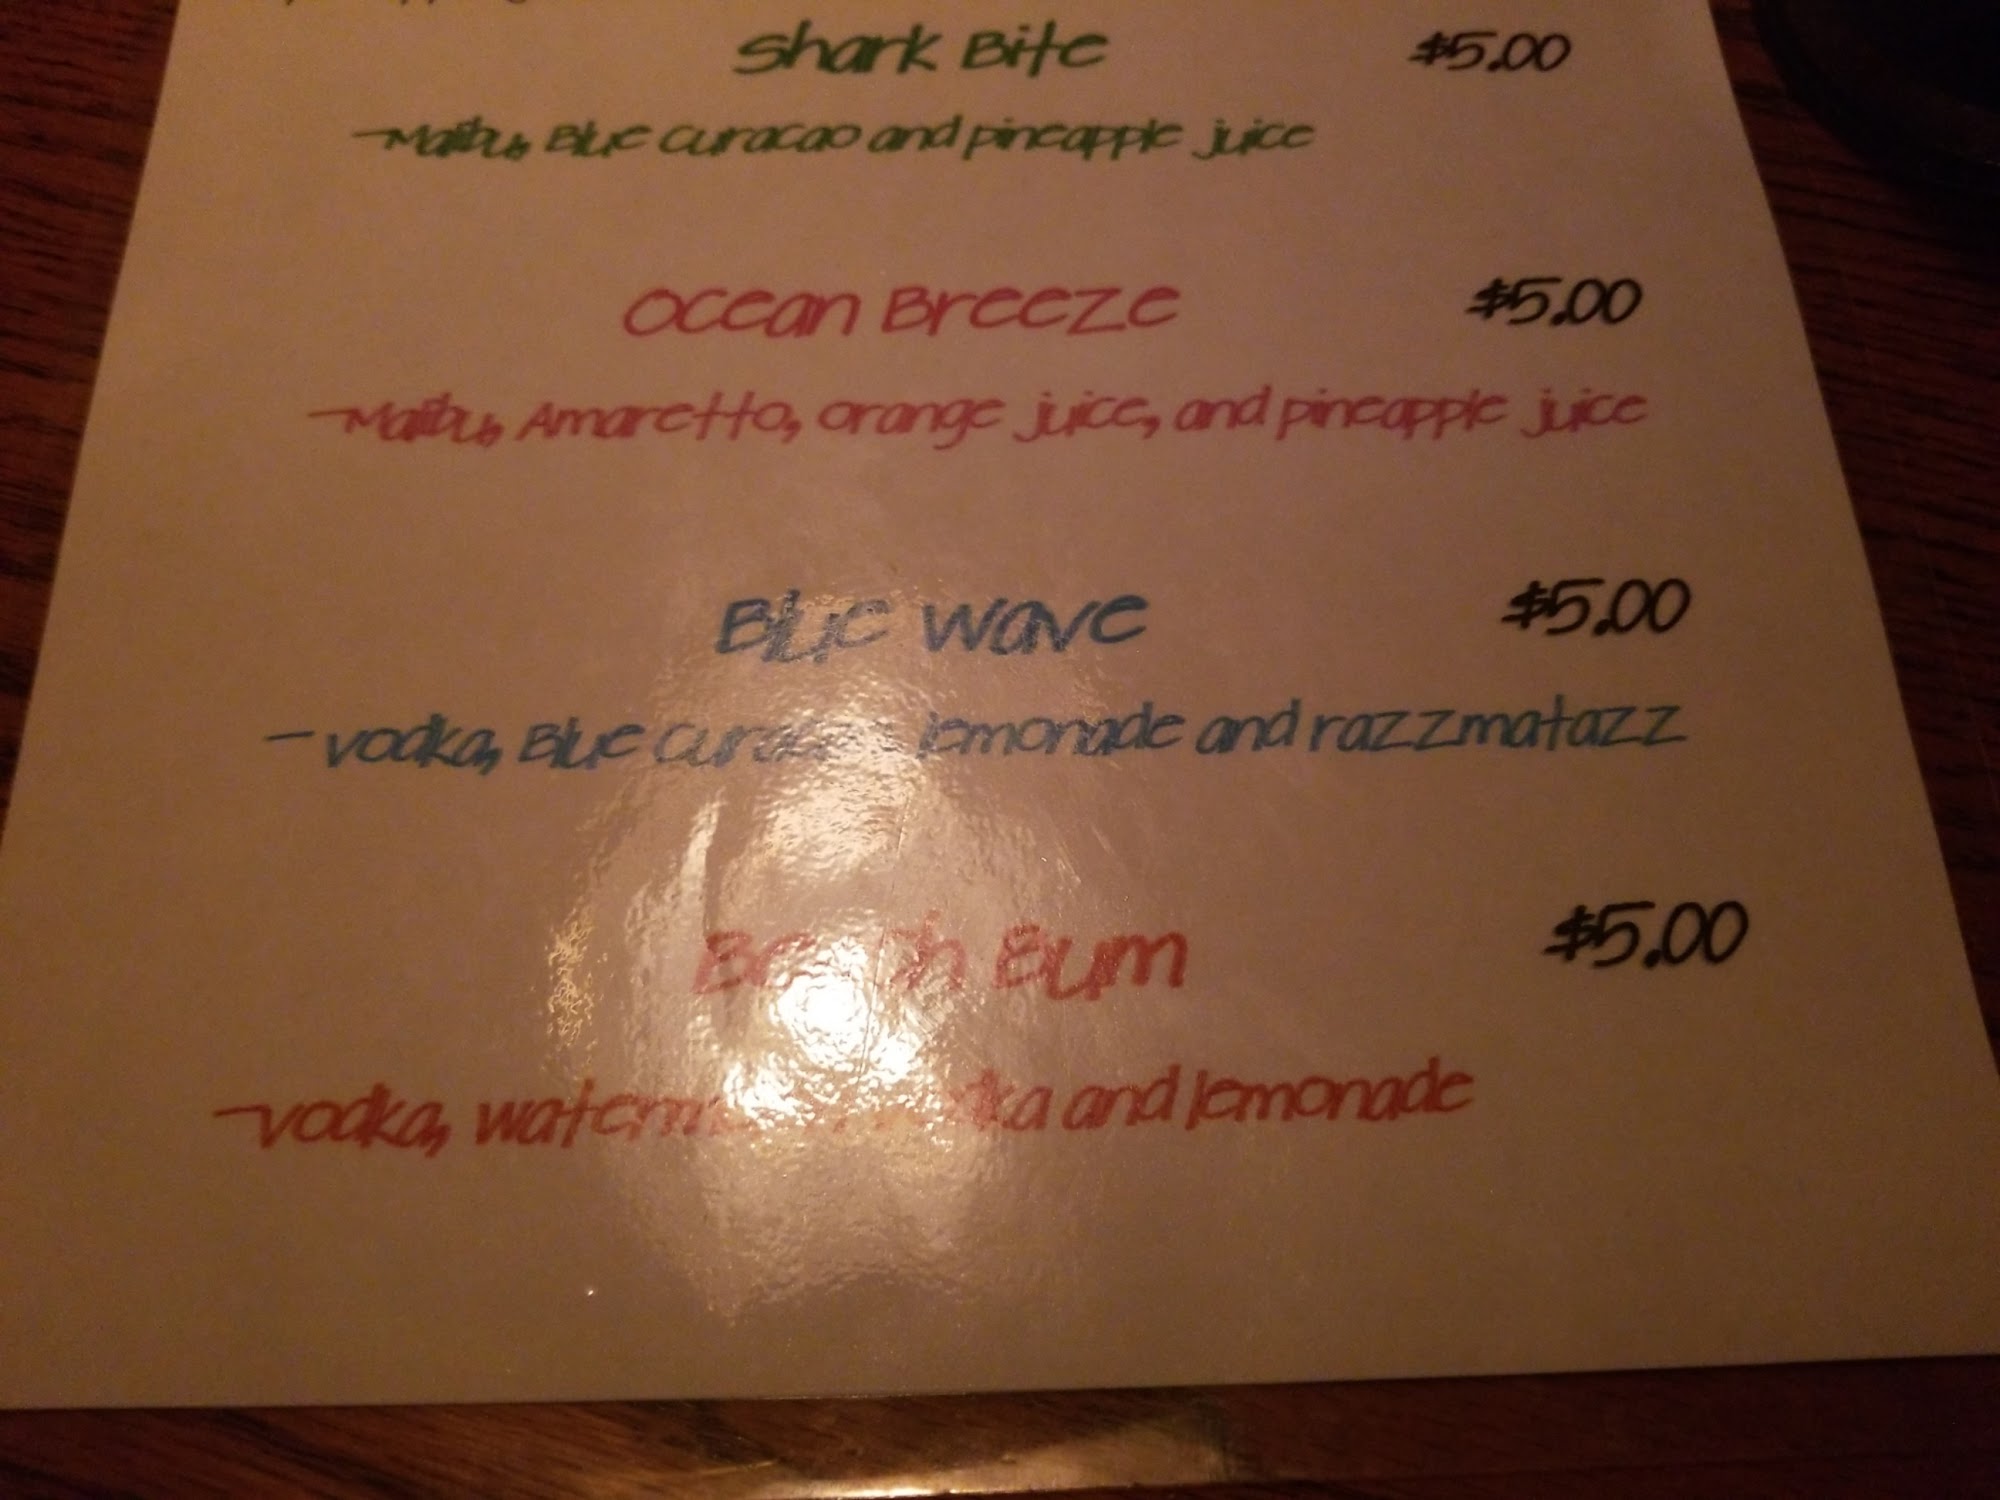 Shark Bite $5.00
-Malibu, Blue Curacao and pineapple juice
Ocean Breeze $5.00
-Malibu, Amaretto, orange juice, and pineapple juice
Blue Wave $5.00
- Vodka, Blue Curacao, lemonade and razzmatazz
Beach Bum $5.00
-Vodka, watermelon vodka and lemonade